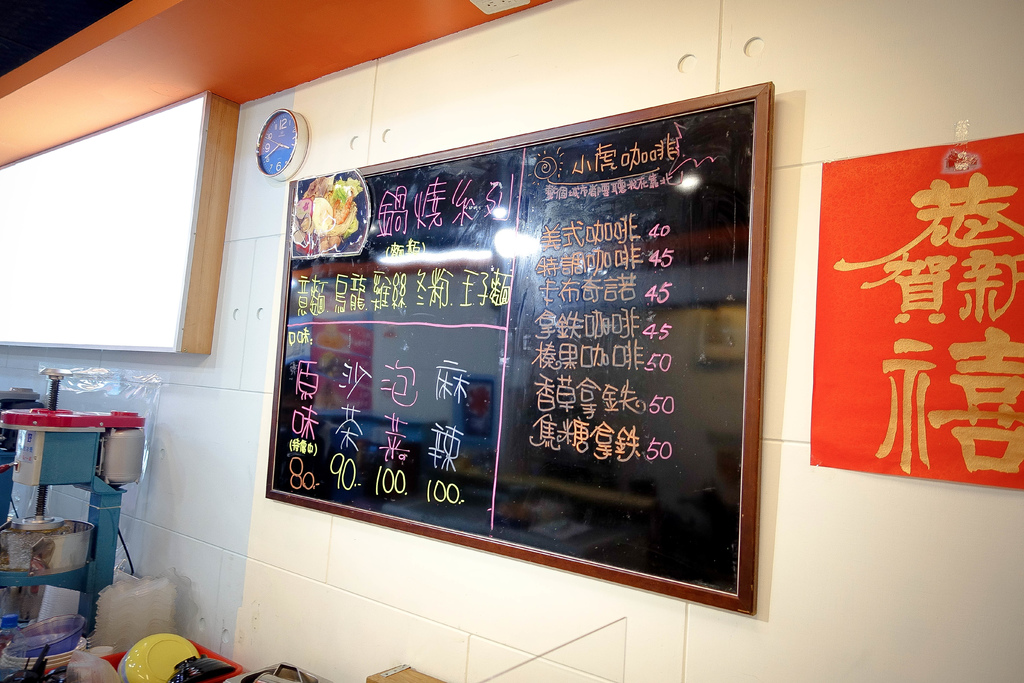 鍋燒系列
(麵類)
意麵.烏龍.雞絲.冬粉.王子麵
口味:
原味 沙茶 泡菜 麻辣
80.- 90.- 100.- 100.-
小虎咖啡
美式咖啡 40
特調咖啡 45
卡布奇諾 45
拿鐵咖啡 45
榛果咖啡 50
香草拿鐵 50
焦糖拿鐵 50
恭賀新禧
12
6